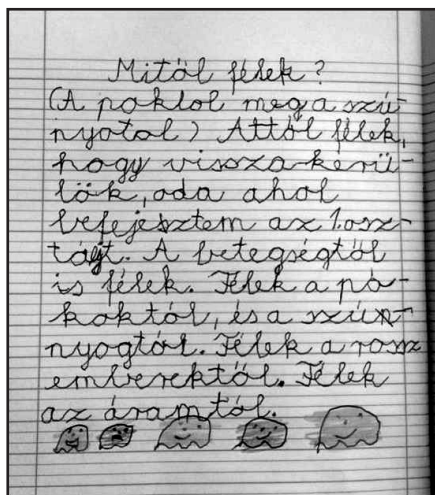 Mitől félek?
(A poktol meg a szú-
nyotol) Attól félek,
hogy vissza kerü-
lök, oda ahol
befejesztem az 1. osz-
tájt. A betegségtől
is félek. Félek a pó-
koktól, és a szún-
nyogtól. Félek a rossz
emberektől. Félek
az áramtól.